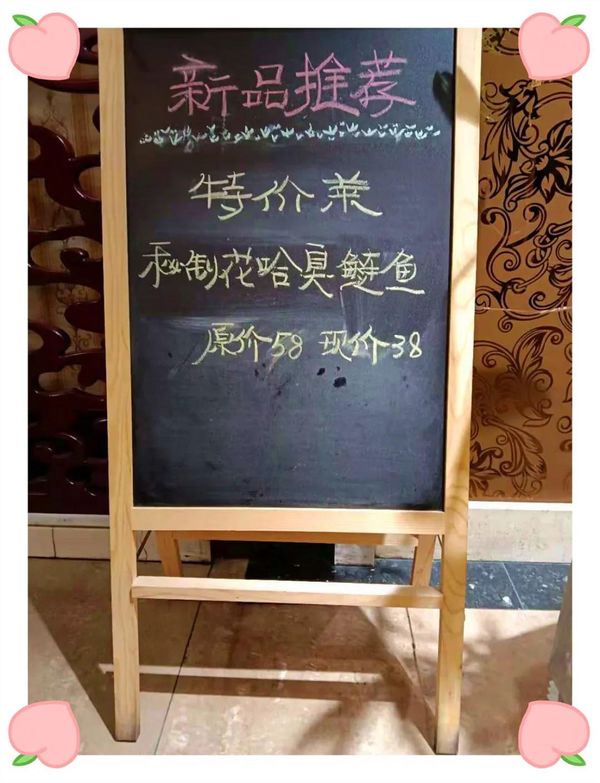 新品推荐
特价菜
秘制花哈臭鲢鱼
原价58 现价38